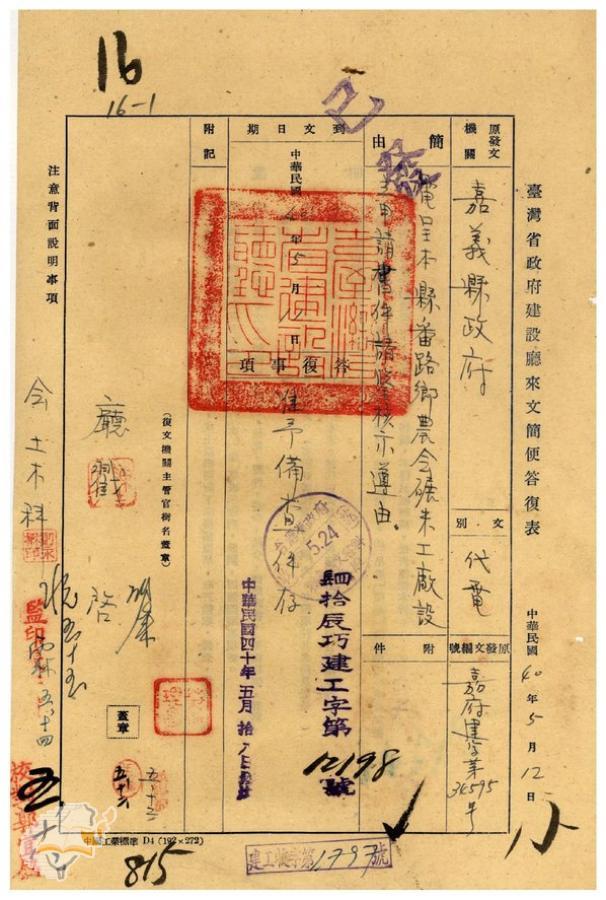 16
16-1
已發
臺灣省政府建設廳來文簡便答復表
中華民國 40 年 5 月 12 日
原發文機關
嘉義縣政府
文別
代電
原發文編號
嘉府建 第 36595 號
簡由
電呈本縣番路鄉農會礦米工廠設
立申請書件請鑒核示遵由
附件
到文日期
中華民國 40 年 5 月 日
答復事項
准予備查件存
5.24
肆拾辰巧建工字第 12198 號
中華民國四十年五月拾八日
附記
(復文機關主管官樹名蓋章)
廳戳
啓
蓋章
五·十六
注意背面說明事項
會土木科
監印
中國工業標準 D4 (192×272)
815
建工收字第 1797 號